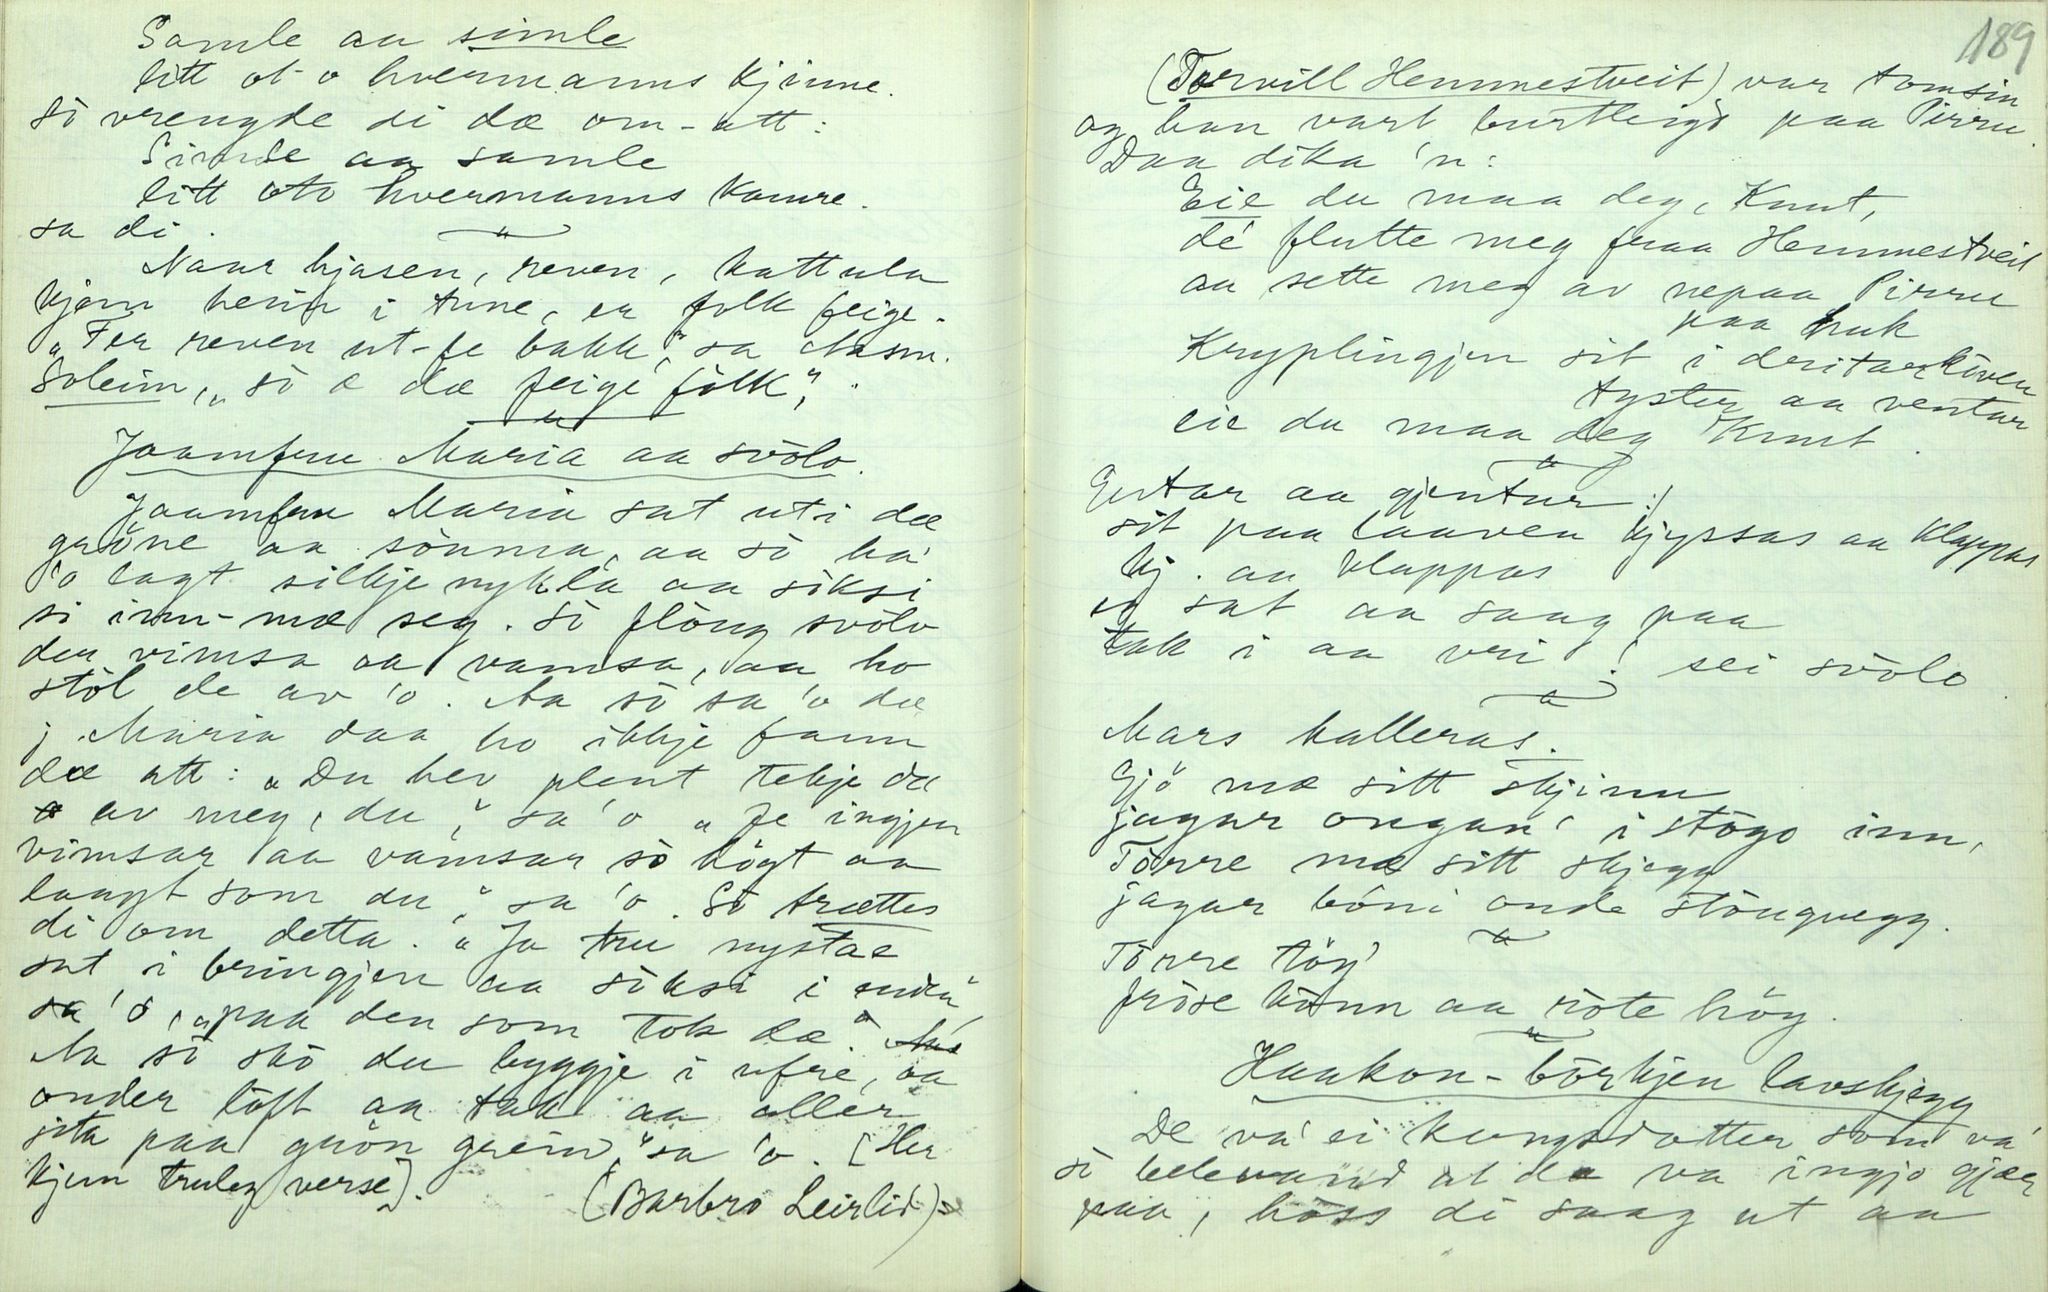 Samle aa simle
litt ot o hvermanns kjinne.
Sò vrengde di dæ om-att:
Simle aa samle
litt oto hvermanns kamre.
sa di.
Naar hjasen, reven, kattula
kjem heim i tune, er folk feige.
"Fer reven ut-fe bakk", sa Aasm.
Soleim, "sò æ dæ feige fólk".
Jaamfru Maria aa svòlo.
Jaamfru Maria sat uti dæ
gröne aa sònma, aa sò ha'
'o lagt silkjenykla aa sòksi
si inn-mæ seg. Sò flöug svòlo
der vimsa aa vamsa, aa ho
stòl de av 'o. Aa sò sa 'o då
j. Maria daa ho ikkje fann
dæ att: "Du hev plent tekje dæ
av meg, du", sa 'o "Fe ingjen
vimsar aa vamsar sò högt aa
langt som du", sa 'o. Sò trættes
di om detta. "Ja tru nystae
sat i bringjen aa sòksi i enden"
sa 'o, "paa den som tok dæ".
Aa sò skò du byggje i ufre, aa
onder löft aa tak aa aller
sita paa grön grein," sa 'o. [Her
kjem truleg verse].
(Barbro Leirlid)
189
(Torvill Hemmestveit) var tomsin
og han vart burtleigd paa Pirru.
Daa dika 'n:
Eie du maa deg, Knut,
de flutte meg fraa Hemmestveit
aa sette meg av nepaa Pirru
paa huk
Kryplingjen sit i dritarkòven
tyster aa ventar
eie du maa deg Knut.
Gutar aa gjentur :/
sit paa laaven kjyssas aa klappas
kj. aa klappas
eg sat aa saag paa
tak i aa vri! sei svòlo.
Mars kalleras.
Gjö mæ sitt skjinn
jagar ongan' i stògo inn,
Tòrre mæ sitt skjegg
jagar bóni onde stöugvegg.
Tòrre töy'
fröse kònn aa ròte höy.
Haakon-börkjen lavskjegg
De va' ei kungsdotter som va'
sò belevand at de va ingjo gjær
paa, höss di saag ut aa